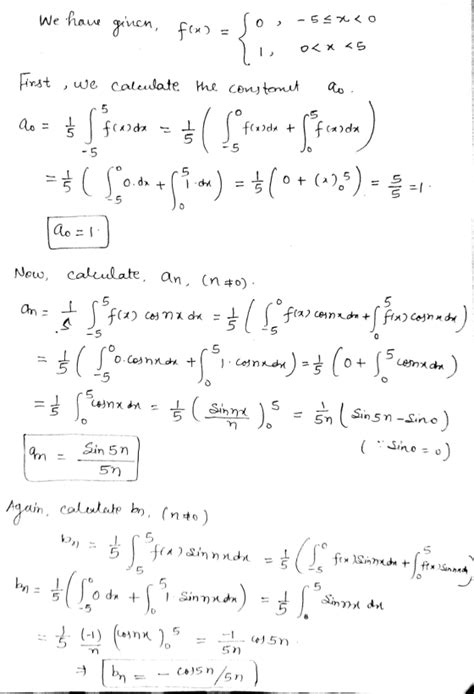 We have given, f(x) = { 0 , -5 ≤ x < 0
1, 0 < x < 5
First, we calculate the constant a₀.
a₀ = 1/5 ∫₋₅⁵ f(x)dx = 1/5 ( ∫₋₅⁰ f(x)dx + ∫₀⁵ f(x)dx )
= 1/5 ( ∫₋₅⁰ 0.dx + ∫₀⁵ 1.dx ) = 1/5 ( 0 + (x)₀⁵ ) = 5/5 = 1.
a₀ = 1.
Now, calculate, an, (n≠0).
an = 1/5 ∫₋₅⁵ f(x) cosnx dx = 1/5 ( ∫₋₅⁰ f(x) cosnx dx + ∫₀⁵ f(x) cosnx dx )
= 1/5 ( ∫₋₅⁰ 0.cosnx dx + ∫₀⁵ 1.cosnx dx ) = 1/5 ( 0 + ∫₀⁵ cosnx dx )
= 1/5 ∫₀⁵ cosnx dx = 1/5 ( sinnx/n )₀⁵ = 1/5n ( Sin5n - Sin0 )
(∵ Sin0 = 0)
an = Sin5n/5n
Again, calculate bn, (n≠0)
bn = 1/5 ∫₋₅⁵ f(x) sinnx dx = 1/5 ( ∫₋₅⁰ f(x) Sinnx dx + ∫₀⁵ f(x) Sinnx dx )
bn = 1/5 ( ∫₋₅⁰ 0 dx + ∫₀⁵ 1 sinnx dx ) = 1/5 ∫₀⁵ Sinnx dx
= 1/5 (-1)/n (cosnx)₀⁵ = -1/5n cos5n
⇒ bn = - cos5n/5n )